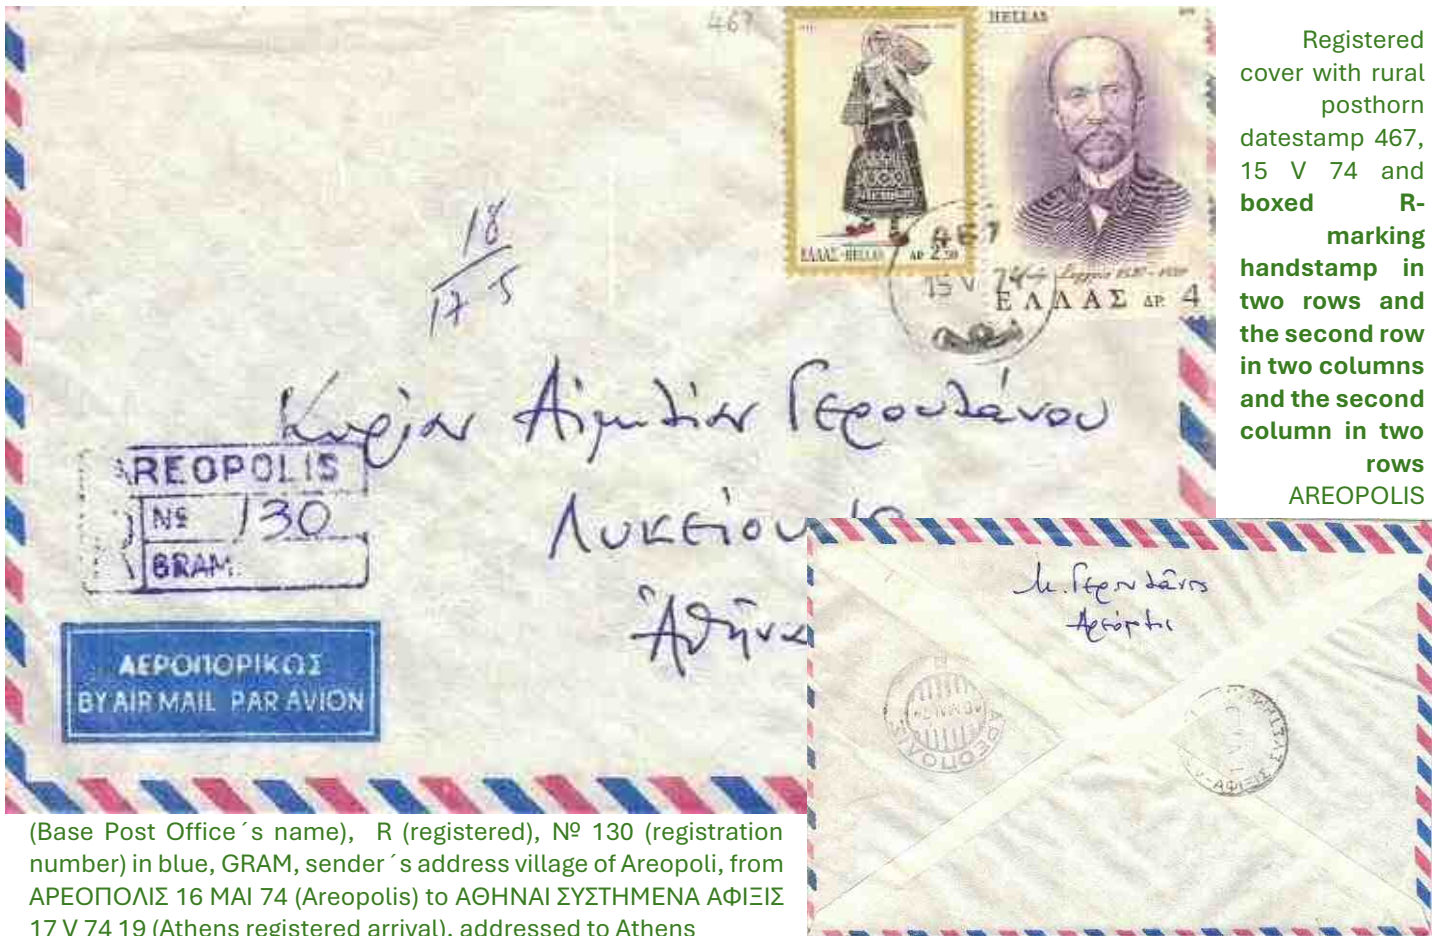 467
HELLAS
ΕΛΛΑΣ-HELLAS ΔΡ 2.50
ΕΛΛΑΣ ΔΡ. 4
467
15 V 74
18
17 5
Κυρίαν Αἰμιλίαν Γερουλάνου
Λυκείου
Ἀθήνα
AREOPOLIS
Nº 130
GRAM.
ΑΕΡΟΠΟΡΙΚΩΣ
BY AIR MAIL PAR AVION
Registered
cover with rural
posthorn
datestamp 467,
15 V 74 and
boxed R-
marking
handstamp in
two rows and
the second row
in two columns
and the second
column in two
rows
AREOPOLIS
Μ. Γερουλάνος
ΑΡΕΟΠΟΛΙΣ
ΑΦΙΞΙΣ
(Base Post Office´s name), R (registered), Nº 130 (registration
number) in blue, GRAM, sender´s address village of Areopoli, from
ΑΡΕΟΠΟΛΙΣ 16 ΜΑΙ 74 (Areopolis) to ΑΘΗΝΑΙ ΣΥΣΤΗΜΕΝΑ ΑΦΙΞΙΣ
17 V 74 19 (Athens registered arrival), addressed to Athens